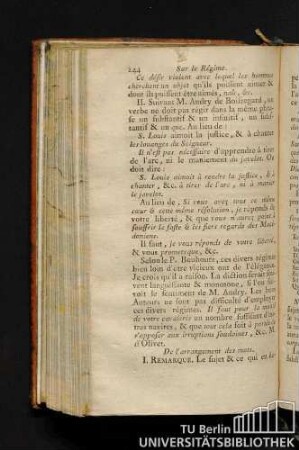 244 Sur le Régime.
Ce désir violent avec lequel les hommes
cherchent un objet qu'ils puissent aimer &
dont ils puissent être aimés, naît, &c.
II. Suivant M. Andry de Boisregard, un
verbe ne doit pas régir dans la même phra-
se un substantif & un infinitif, un subs-
tantif & un que. Au lieu de :
S. Louis aimoit la justice, & à chanter
les louanges du Seigneur.
Il n'est pas nécessaire d'apprendre à tirer
de l'arc, ni le maniement du javelot. On
doit dire :
S. Louis aimoit à rendre la justice, & à
chanter, &c. à tirer de l'arc, ni à manier
le javelot.
Au lieu de, Si vous avez tous ce même
cœur & cette même résolution, je réponds de
votre liberté, & que vous n'aurez point à
souffrir le faste & les fiers regards des Macé-
doniens.
Il faut, je vous réponds de votre liberté,
& vous promets que, &c.
Selon le P. Bouhours, ces divers régimes
bien loin d'être vicieux ont de l'élégance.
Je crois qu'il a raison. La diction seroit sou-
vent languissante & monotone, si l'on sui-
voit le sentiment de M. Andry. Les bons
Auteurs ne font pas difficulté d'employer
ces divers régimes. Il faut pour la sûreté
de votre
un nombre suffisant d'au-
tres navires, & que tout cela soit à portée de
s'opposer aux irruptions soudaines, &c. M.
d'Olivet.
De l'arrangement des mots.
I. REMARQUE. Le sujet & ce qui en
TU Berlin
UNIVERSITÄTSBIBLIOTHEK